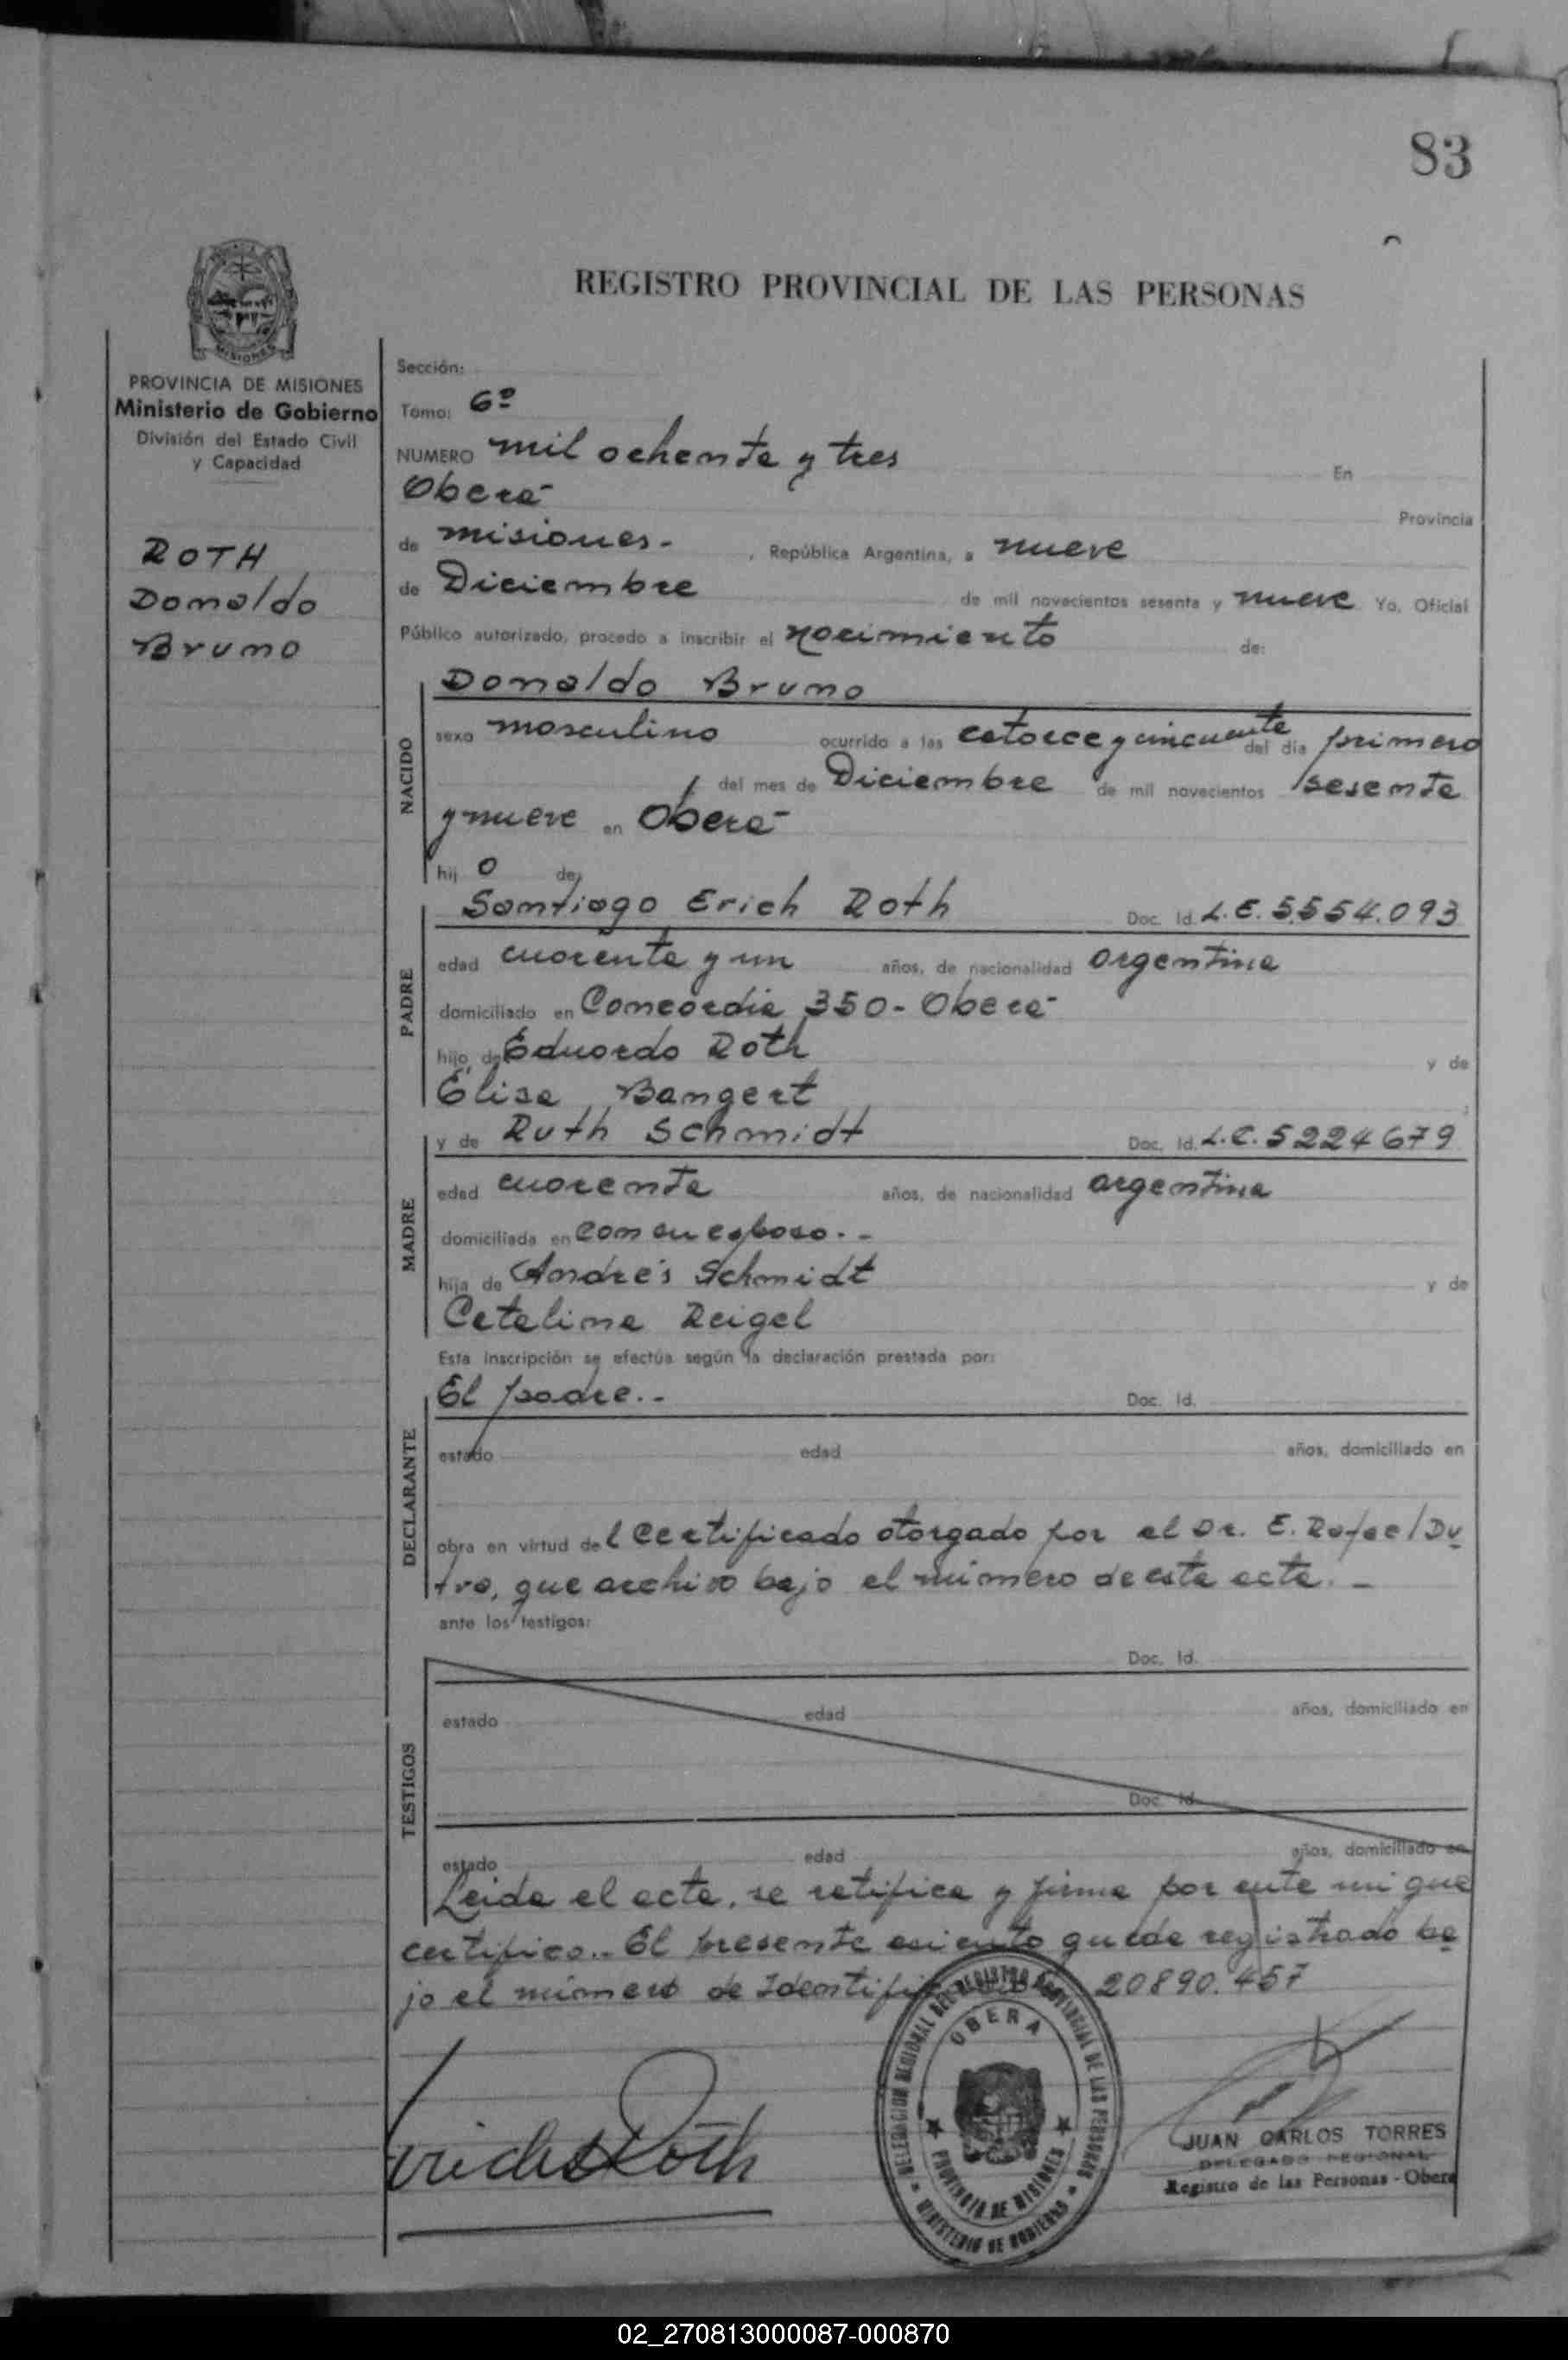 83
REGISTRO PROVINCIAL DE LAS PERSONAS
MISIONES
PROVINCIA DE MISIONES
Ministerio de Gobierno
División del Estado Civil
y Capacidad
ROTH
Donaldo
Bruno
Sección:
Tomo: 6º
NUMERO mil ochenta y tres En
Oberá Provincia
de misiones.- , República Argentina, a nueve
de Diciembre de mil novecientos sesenta y nueve Yo, Oficial
Público autorizado, procedo a inscribir el nacimiento de:
NACIDO
Donaldo Bruno
sexo masculino ocurrido a las catorce y cincuenta del día primero
del mes de Diciembre de mil novecientos sesenta
y nueve en Oberá
hij o de
PADRE
Santiago Erich Roth Doc. Id. L.E. 5.554.093
edad cuarenta y un años, de nacionalidad argentina
domiciliado en Concordia 350- Oberá
hijo de Eduardo Roth y de
Elisa Bangert ;
MADRE
y de Ruth Schmidt Doc. Id. L.C. 5224679
edad cuarenta años, de nacionalidad argentina
domiciliada en con su esposo.-
hija de Andrés Schmidt y de
Catalina Reigel
Esta inscripción se efectúa según la declaración prestada por:
DECLARANTE
El padre.- Doc. Id.
estado edad años, domiciliado en
obra en virtud del Certificado otorgado por el Dr. E. Rafael Du
tra, que archivo bajo el número de esta acta.-
ante los testigos:
TESTIGOS
Doc. Id.
estado edad años, domiciliado en
Doc. Id.
estado edad años, domiciliado en
Leida el acta, se ratifica y firma por ante mi que
certifico.- El presente asiento queda registrado ba
jo el número de 20890.457
Roth
DELEGACION REGIONAL DEL REGISTRO PROVINCIAL DE LAS PERSONAS
OBERA
PROVINCIA DE MISIONES
MINISTERIO DE GOBIERNO
JUAN CARLOS TORRES
DELEGADO REGIONAL
Registro de las Personas - Oberá
02_270813000087-000870